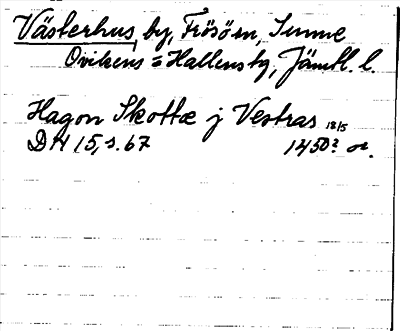 Västerhus, by, Frösön, Sunne
Ovikens o Hallens tg, Jämtl. l.
Hagon Skottæ j Vestras 18/5
DN 15, s. 67 1450? or.